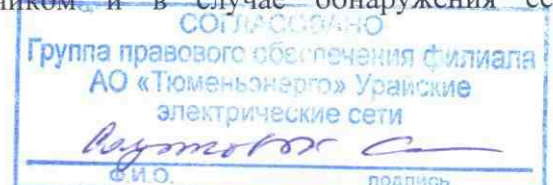 ником и в случае обнаружения
СОГЛАСОВАНО
Группа правового обеспечения филиала
АО «Тюменьэнерго» Урайские
электрические сети
Ф.И.О. подпись